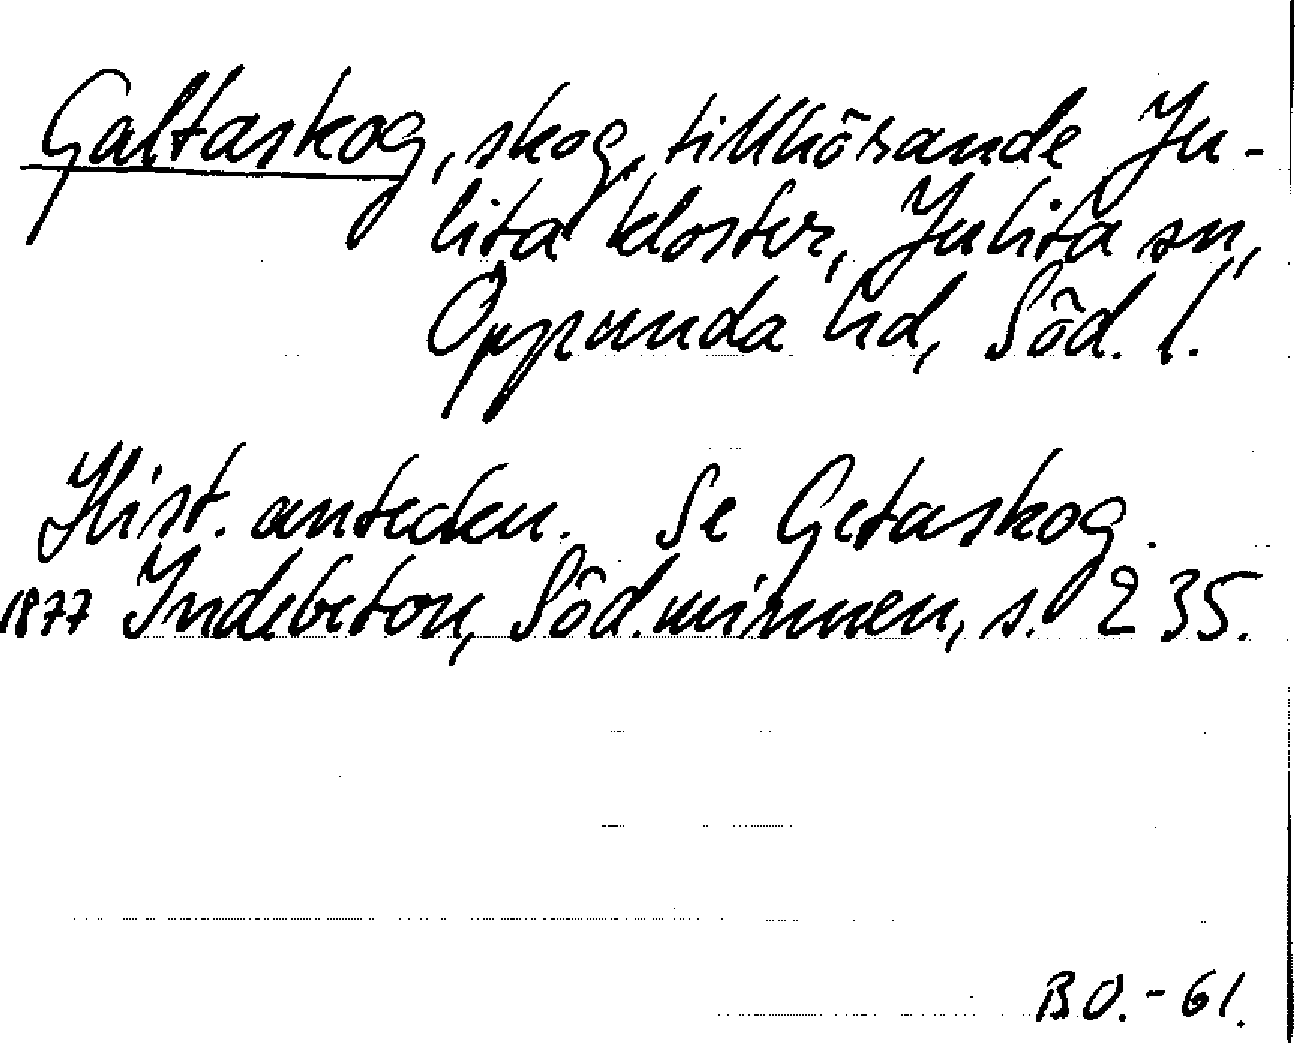 Galtaskog, skog, tillhörande Ju-
lita kloster, Julita sn,
Oppunda hd, Söd. l.
Hist. anteckn. Se Getaskog.
1877 Indebetou, Söd.minnen, s. 235.
B O. - 61.